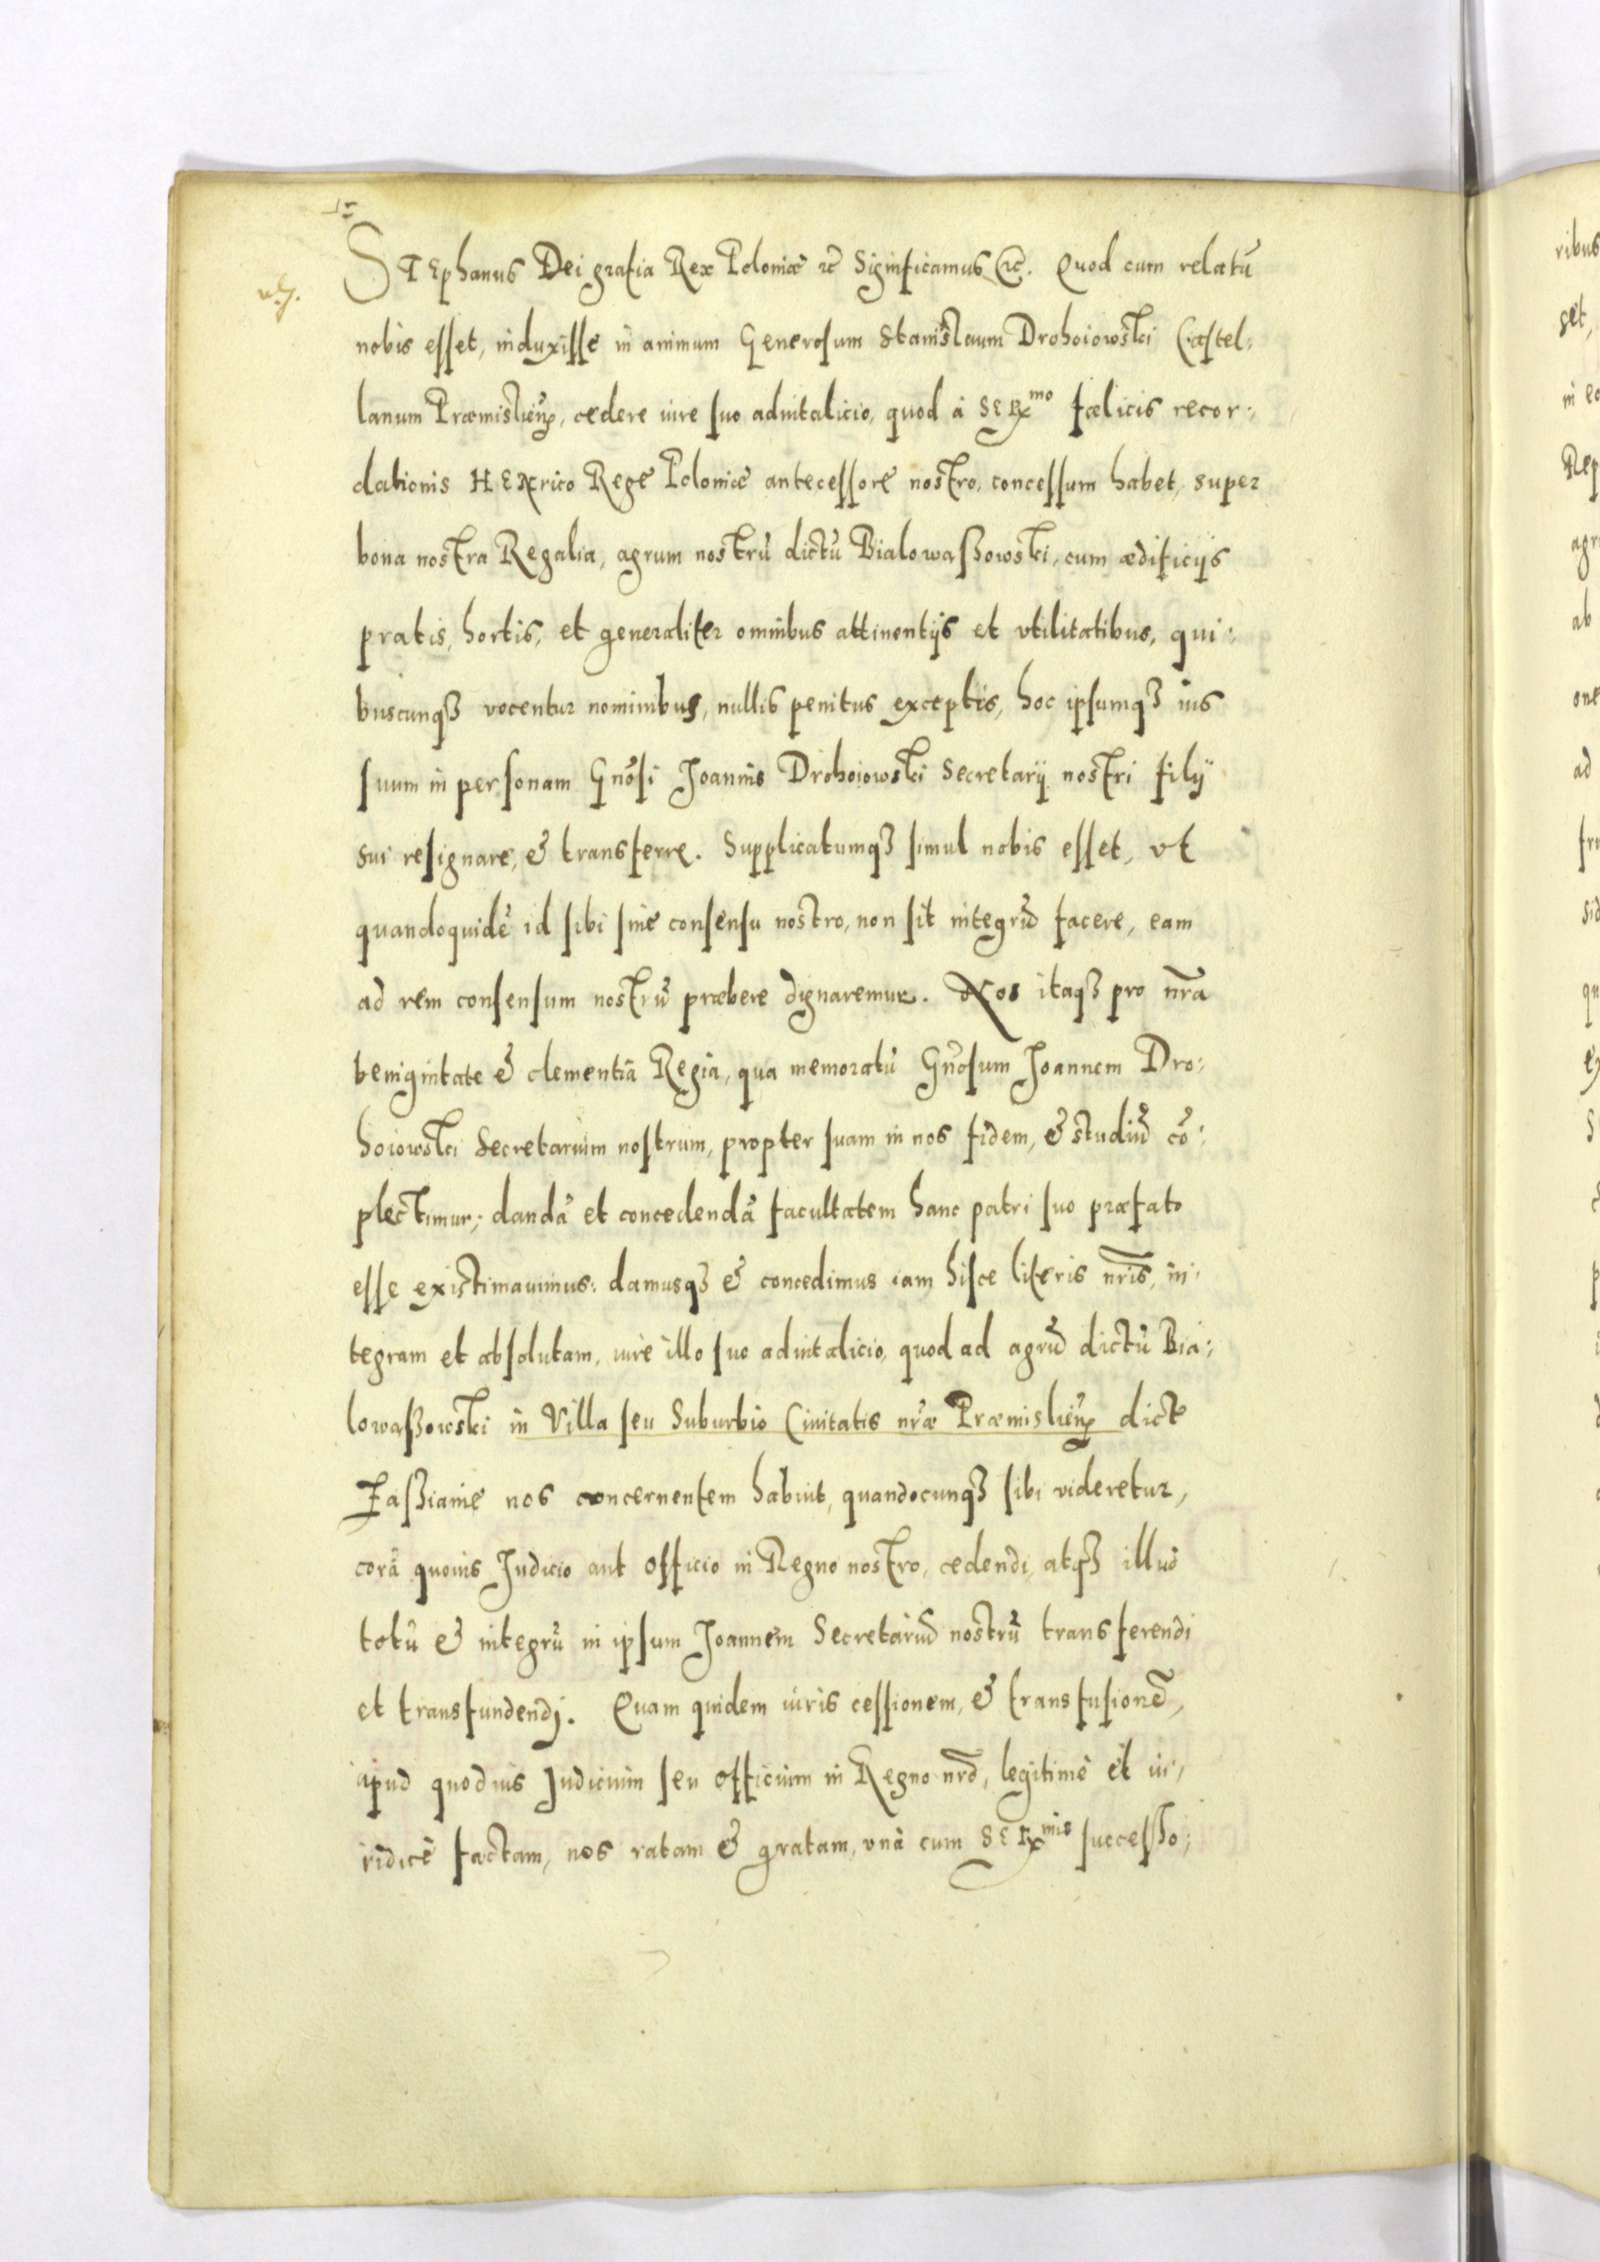 STEphanus Dei gratia Rex Poloniæ etc̃ Significamus etc̃. Quod cum relatũ
nobis esset, induxisse in animum Generosum Stanislaum Drohoiowski Castel,
lanum Præmislieñ, cedere iure suo aduitalicio, quod à SERmo fœlicis recor,
dationis HENrico Rege Poloniæ antecessore nostro, concessum habet, super
bona nostra Regalia, agrum nostrũ dictũ Bialowaßowski, cum ædificijs
pratis, hortis, et generaliter omnibus attinentijs et vtilitatibus, qui,
buscunqȝ vocentur nominibus, nullis penitus exceptis, hoc ipsumqȝ ius
suum in personam Gñosi Joannis Drohoiowski Secretarij nostri filij
sui resignare, & transferre. Supplicatumqȝ simul nobis esset, vt
quandoquidẽ id sibi sine consensu nostro, non sit integrũ facere, eam
ad rem consensum nostrũ præbere dignaremur. Nos itaqȝ pro nr̃a
benignitate & clementia Regia, qua memoratũ Gñosum Joannem Dro,
hoiowski Secretarium nostrum, propter suam in nos fidem, & studiũ cõ,
plectimur, dandã et concedendã facultatem hanc patri suo præfato
esse existimauimus: damusqȝ & concedimus iam hisce literis nr̃is, in,
tegram et absolutam, iure illo suo aduitalicio, quod ad agrũ dictũ Bia,
lowaßowski in Villa seu Suburbio Ciuitatis nr̃æ Præmislieñ dict
Zaßianie nos concernentem habuit, quandocunqȝ sibi videretur,
corã quouis Judicio aut Officio in Regno nostro, cedendi, atqȝ illud
totũ & integrũ in ipsum Joannem Secretariũ nostrũ transferendi
et transfundendj. Quam quidem iuris cessionem, & transfusionẽ,
apud quoduis Judicium seu Officium in Regno nr̃o, legitimè et iu,
ridicè factam, nos ratam & gratam, vnà cum SERmis successo,